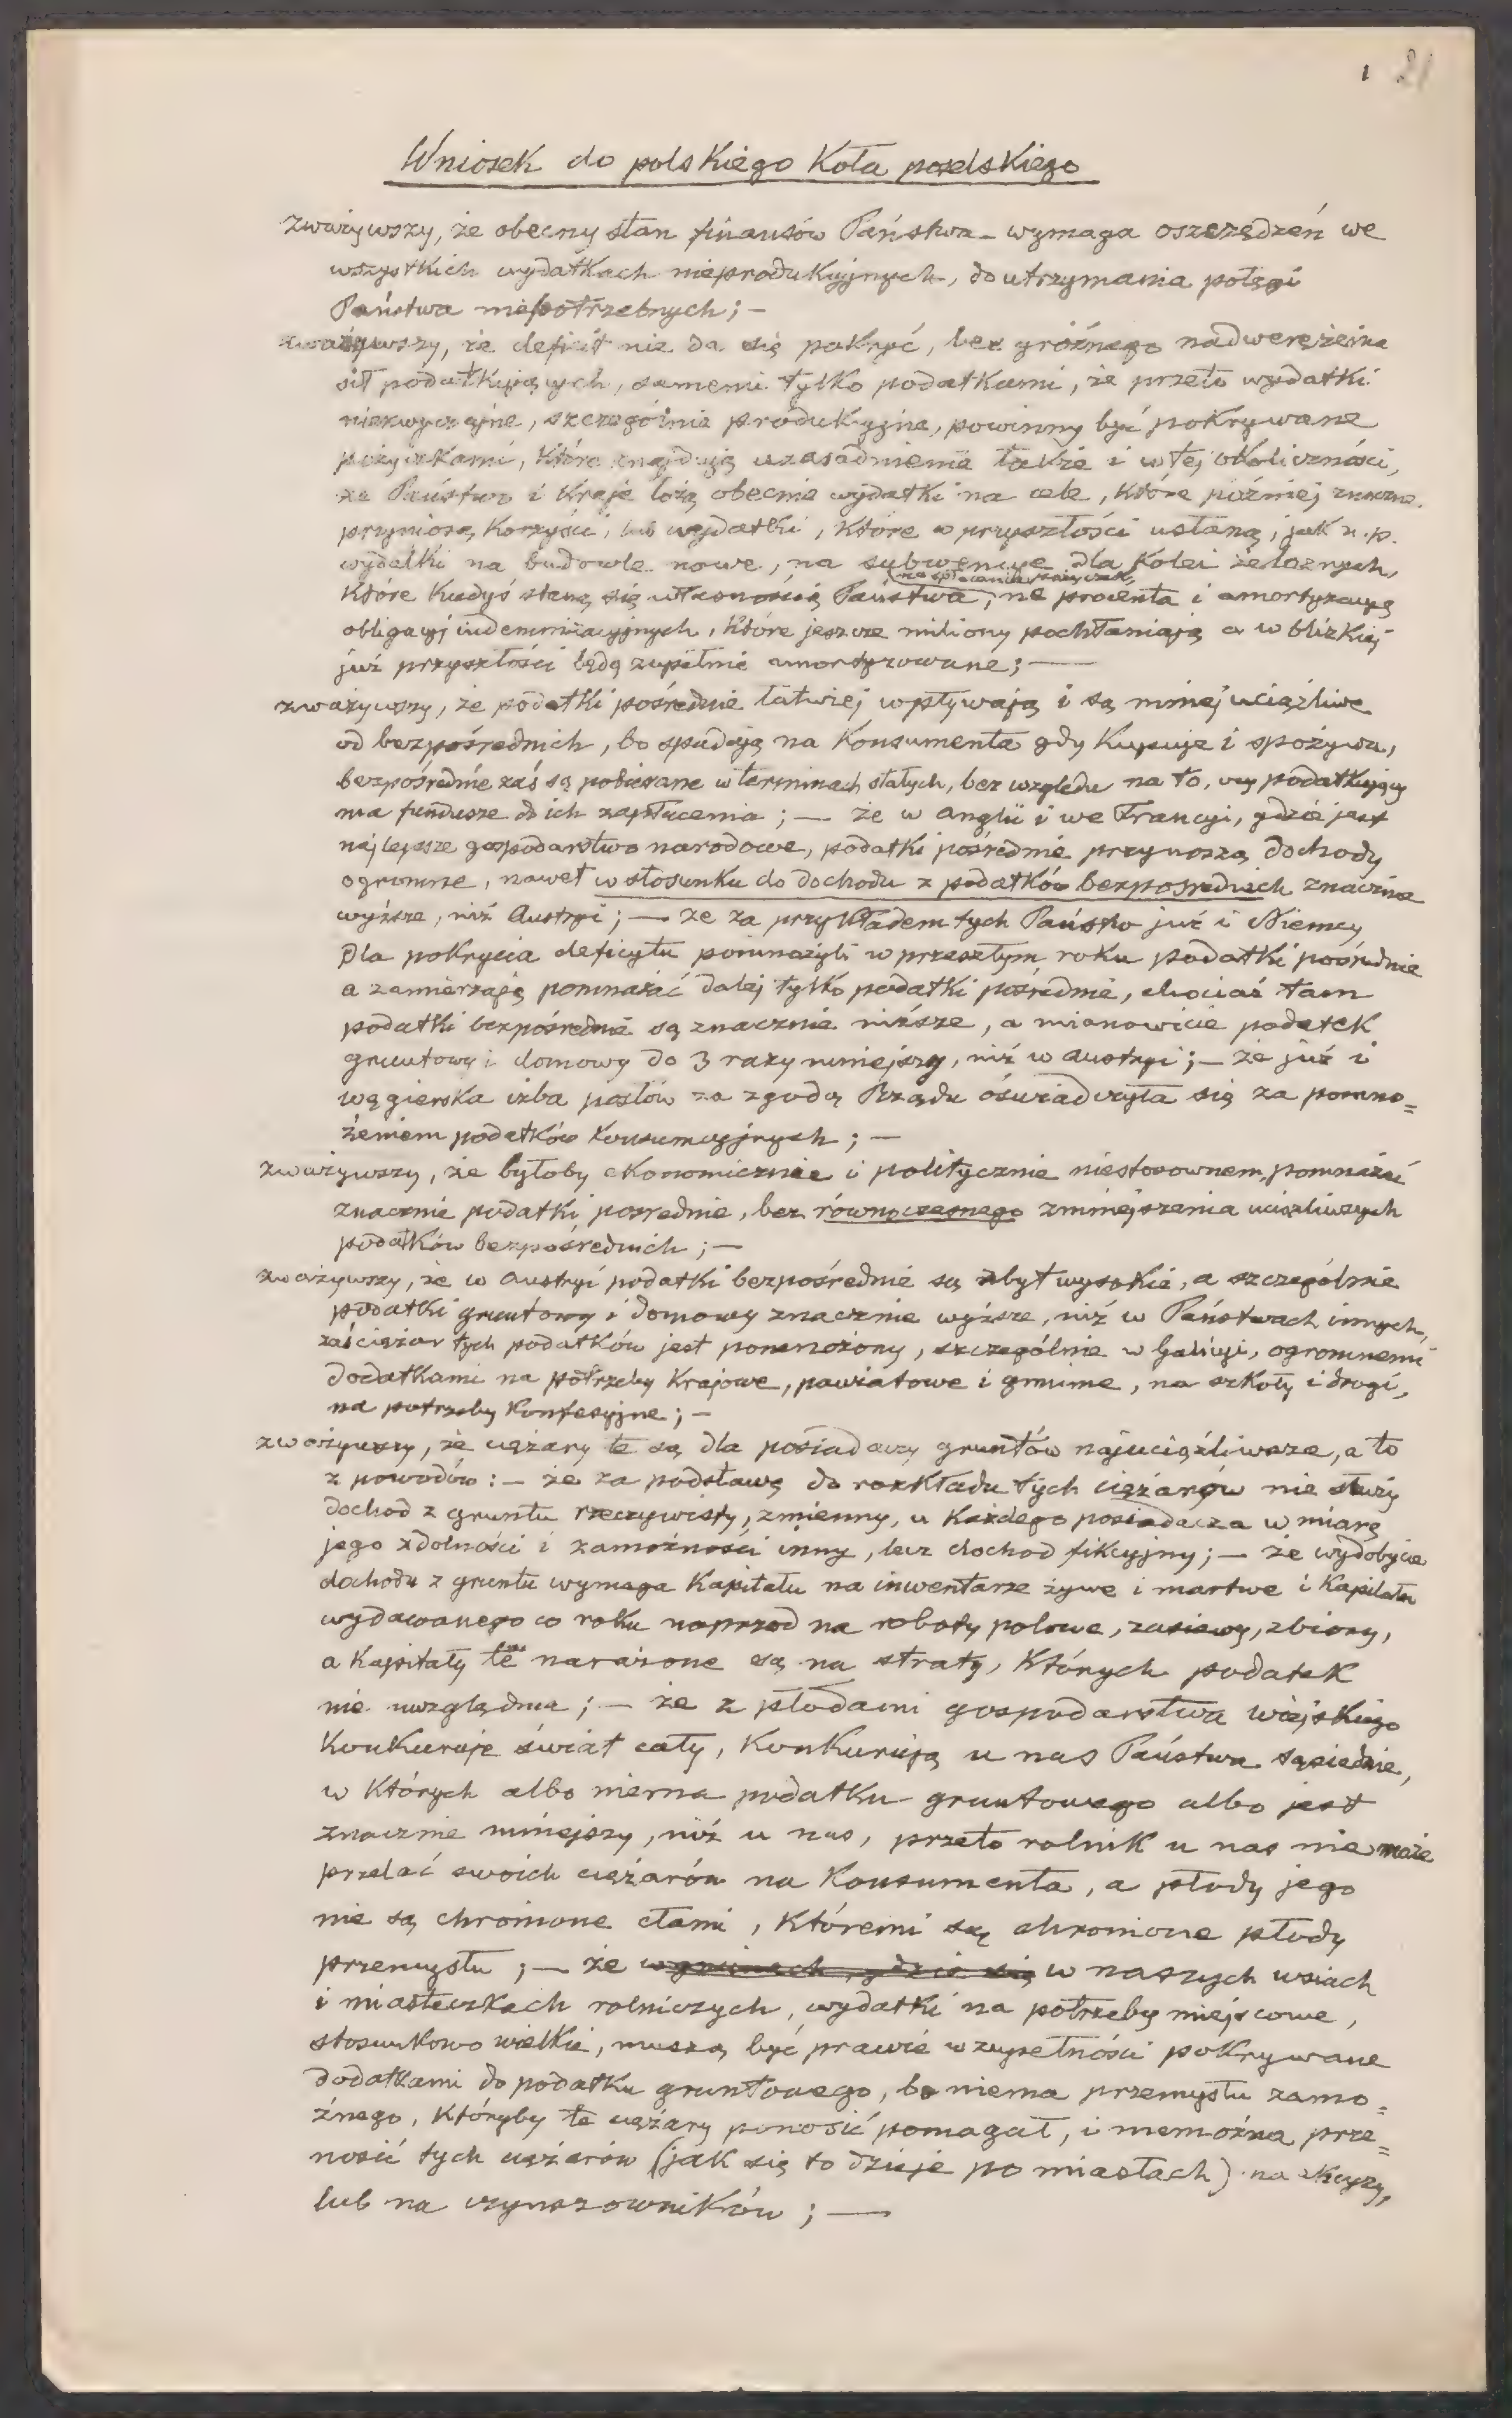 1 21
Wniosek do polskiego Koła poselskiego
zważywszy, że obecny stan finansów Państwa wymaga oszczędzeń we
wszystkich wydatkach nieprodukcyjnych, do utrzymania potęgi
Państwa niepotrzebnych; —
zważywszy, że deficit nie da się pokryć, bez groźnego nadwerężenia
sił podatkujących, samemi tylko podatkami, że przeto wydatki
niezwyczajne, szczególnie produkcyjne, powinny być pokrywane
pożyczkami, które znajdują uzasadnienie także i w tej okoliczności,
że Państwo i Kraje łożą obecnie wydatki na cele, które później znaczne
przyniosą korzyści, lub wydatki, które w przyszłości ustaną, jak n. p.
wydatki na budowle nowe, na subwencye dla Kolei żelaznych,
na spłacenie pożyczek,
które kiedyś staną się własnością Państwa, na procenta i amortyzacyę
obligacyj indemnizacyjnych, które jeszcze miliony pochłaniają a w blizkiej
już przyszłości będą zupełnie umortyzowane; —
zważywszy, że podatki pośrednie łatwiej wpływają i są mniej uciążliwe
od bezpośrednich, bo spadają na Konsumenta gdy Kupuje i spożywa,
bezpośrednie zaś są pobierane w terminach stałych, bez względu na to, czy podatkujący
ma fundusze do ich zapłacenia; — że w Anglii i we Francyi, gdzie jest
najlepsze gospodarstwo narodowe, podatki pośrednie przynoszą dochody
ogromne, nawet w stosunku do dochodu z podatków bezpośrednich znacznie
wyższe, niż Austryi; — że za przykładem tych Państw już i Niemcy
dla pokrycia deficytu pomnożyli w przeszłym roku podatki pośrednie
a zamierzają pomnażać dalej tylko podatki pośrednie, chociaż tam
podatki bezpośrednie są znacznie niższe, a mianowicie podatek
gruntowy i domowy do 3 razy mniejszy, niż w Austryi; — że już i
węgierska izba posłów za zgodą Rządu oświadczyła się za pomno=
żeniem podatków konsumcyjnych; —
zważywszy, że byłoby ekonomicznie i politycznie niestosownem, pomnażać
znacznie podatki pośrednie, bez równoczesnego zmniejszenia uciążliwszych
podatków bezpośrednich; —
zważywszy, że w Austryi podatki bezpośrednie są zbyt wysokie, a szczególnie
podatki gruntowy i domowy znacznie wyższe, niż w Państwach innych,
zaś ciężar tych podatków jest pomnożony, szczególnie w Galicyi, ogromnemi
dodatkami na potrzeby Krajowe, powiatowe i gminne, na szkoły i drogi,
na potrzeby Konfesyjne; —
zważywszy, że ciężary te są dla posiadaczy gruntów najuciążliwsze, a to
z powodów: — że za podstawę do rozkładu tych ciężarów nie służy
dochod z gruntu rzeczywisty, zmienny, u Każdego posiadacza w miarę
jego zdolności i zamożności inny, lecz dochod fikcyjny; — że wydobycie
dochodu z gruntu wymaga Kapitału na inwentarze żywe i martwe i Kapitału
wydawanego co roku naprzod na roboty polowe, zasiewy, zbiory,
a Kapitały te narażone są na straty, Których podatek
nie uwzględnia; — że z płodami gospodarstwa wiejskiego
Konkuruje świat cały, Konkurują u nas Państwa sąsiednie,
w Których albo niema podatku gruntowego albo jest
znacznie mniejszy, niż u nas, przeto rolnik u nas nie może
przelać swoich ciężarów na Konsumenta, a płody jego
nie są chronione cłami, Któremi są chronione płody
przemysłu; — że w gminach, gdzie się w naszych wsiach
i miasteczkach rolniczych, wydatki na potrzeby miejscowe,
stosunkowo wielkie, muszą być prawie w zupełności pokrywane
dodatkami do podatku gruntowego, bo niema przemysłu zamo=
żnego, Któryby te ciężary ponosić pomagał, i niemożna prze=
nosić tych ciężarów (jak się to dzieje po miastach) na
lub na czynszowników; —